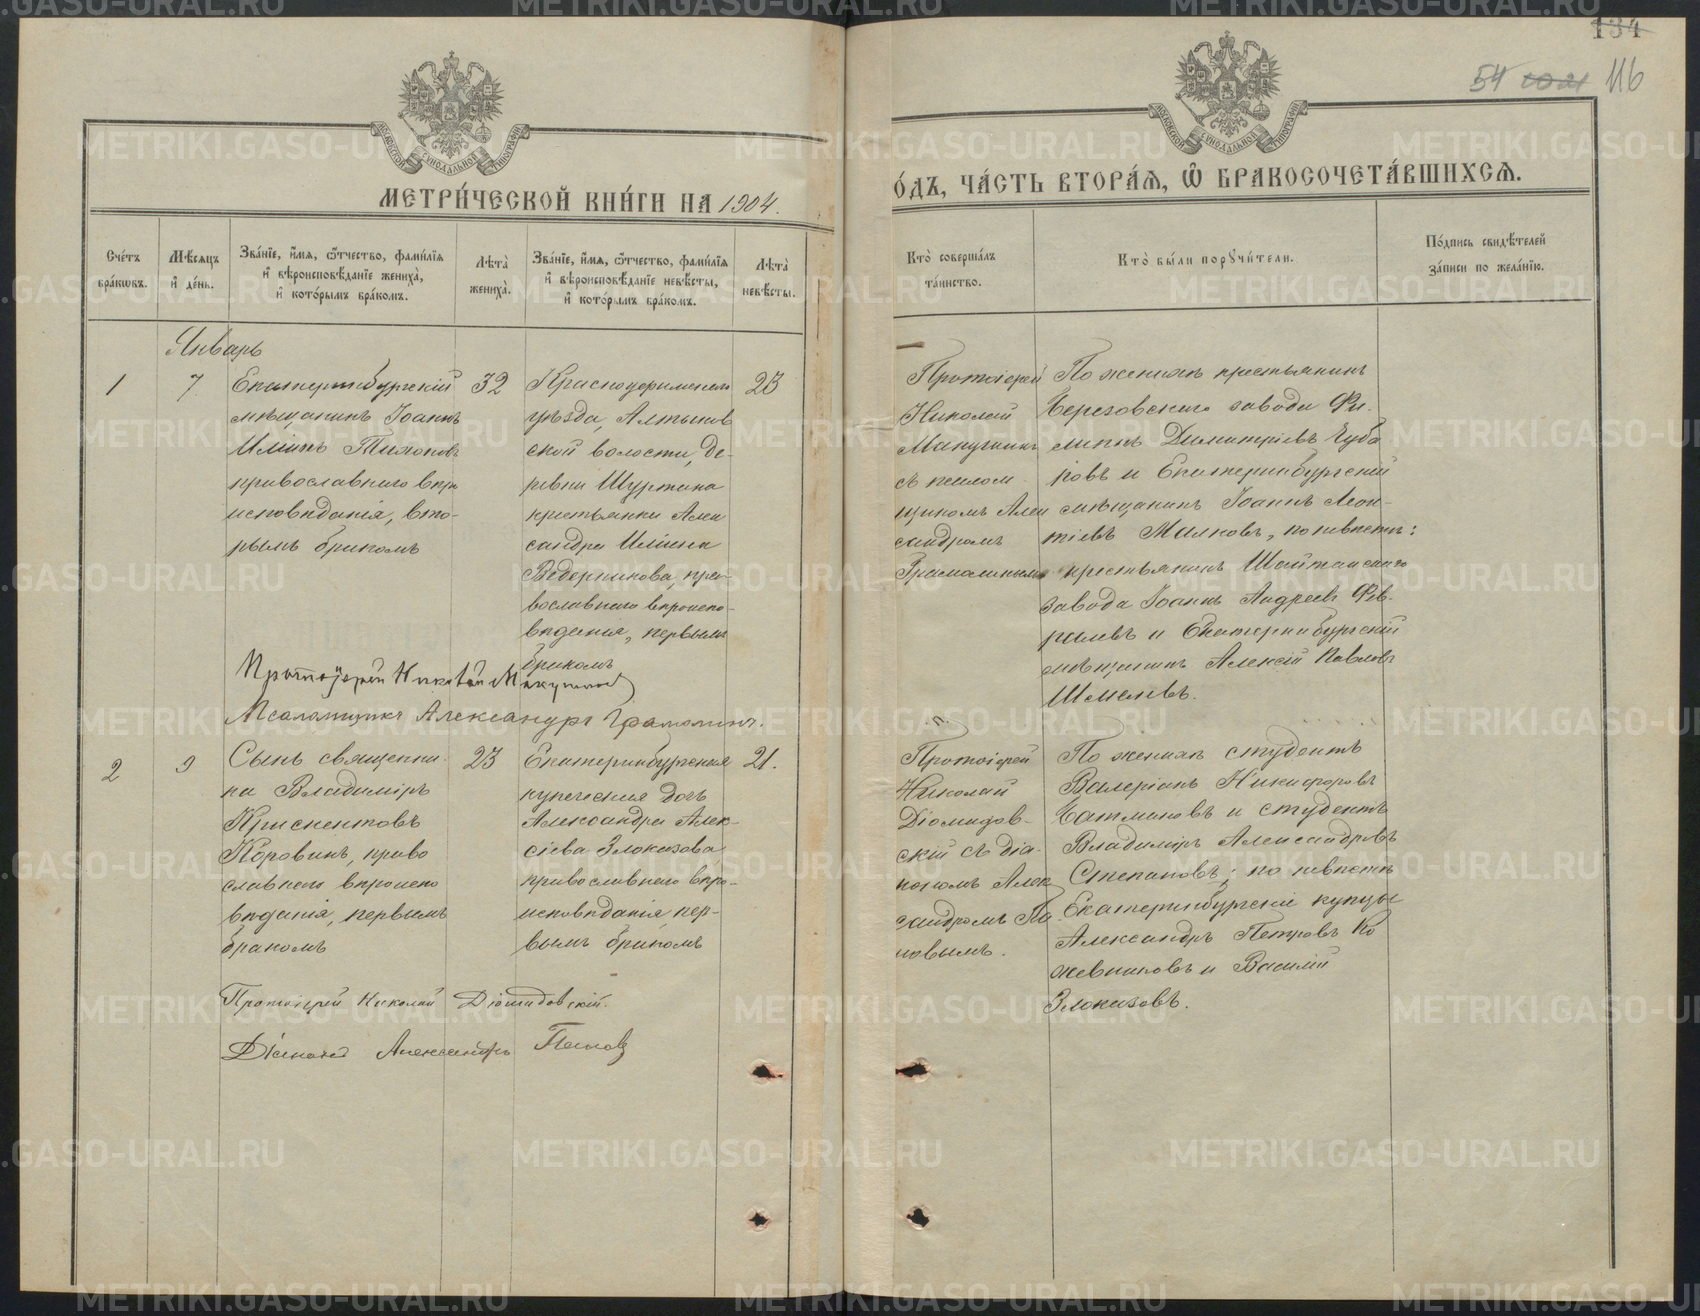 134
54 116
МОСКОВСКОЙ СѴНОДАЛЬНОЙ ТИПОГРАФІИ
МОСКОВСКОЙ СѴНОДАЛЬНОЙ ТИПОГРАФІИ
МЕТРИ́ЧЕСКОЙ КНИ́ГИ НА 1904.
О́ДЪ, ЧА́СТЬ ВТОРА́Я, Ѽ БРАКОСОЧЕТА́ВШИХСѦ.
Сче́тъ бра́кѡвъ.
Мѣ́сяцъ и҆ де́нь.
Зва́нїе, и҆́мя, ѻ҆́тчество, фами́лїя и҆ вѣроисповѣ́данїе жениха̀, и҆ кото́рымъ бра́комъ.
Лѣта̀ жениха̀.
Зва́нїе, и҆́мя, ѻ҆́тчество, фами́лїя и҆ вѣроисповѣ́данїе невѣ́сты, и҆ кото́рымъ бра́комъ.
Лѣта̀ невѣ́сты.
Кто̀ соверша́лъ та́инство.
Кто̀ бы́ли порꙋчи́тели.
По́дпись свидѣ́телей за́писи по жела́нїю.
Январь
1
7
Екатеринбургскій
мѣщанинъ Іоаннъ
Иліинъ Тихоновъ
православнаго вѣро
исповѣданія, вто-
рымъ бракомъ
32
Красноуфимскаго
уѣзда, Алтынов
ской волости, де-
ревни Шуртана
крестьянка Алек
сандра Иліина
Ведерникова, пра-
вославнаго вѣроиспо-
вѣданія, первымъ
бракомъ
23
Протоіерей
Николай
Макушинъ
съ псалом
щикомъ Алек
сандромъ
Грамолинымъ
По женихѣ крестьянинъ
Березовскаго завода Фи-
липпъ Димитріевъ Чуба
ровъ и Екатеринбургскій
мѣщанинъ Іоаннъ Леон-
тіевъ Малковъ, по невѣстѣ:
крестьянинъ Шайтанскаго
завода Іоаннъ Андреевъ Фев-
ралевъ и Екатеринбургскій
мѣщанинъ Алексій Павловъ
Шмелевъ.
Протоіерей Николай Макушинъ
Псаломщикъ Александръ Грамолинъ.
2
9
Сынъ священни-
ка Владиміръ
Крискентовъ
Коровинъ, право
славнаго вѣроиспо
вѣданія, первымъ
бракомъ
23
Екатеринбургская
купеческая дочь
Александра Алек-
сіева Злоказова
православнаго вѣро-
исповѣданія, пер-
вымъ бракомъ
21.
Протоіерей
Николай
Діомидов-
скій съ діа-
кономъ Алек
сандромъ Па
новымъ.
По женихѣ студентъ
Валеріанъ Никифоровъ
и студентъ
Владиміръ Александровъ
Степановъ; по невѣстѣ
Екатеринбургскіе купцы
Александръ Петровъ Ко
жевниковъ и Василій
Злоказовъ.
Протоіерей Николай Діомидовскій.
Діаконъ Александръ Пановъ
METRIKI.GASO-URAL.RU